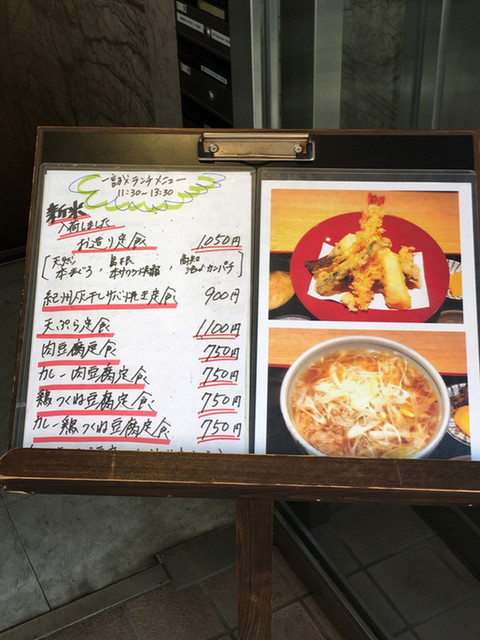 ランチメニュー
11:30~13:30
新米
入荷しました
お造り定食 1050円
天然 島根 高知
本まぐろ、本サワラ、カンパチ
紀州灰干しサバ焼き定食 900円
天ぷら定食 1100円
肉豆腐定食 750円
カレー肉豆腐定食 750円
鶏つくね豆腐定食 750円
カレー鶏つくね豆腐定食 750円